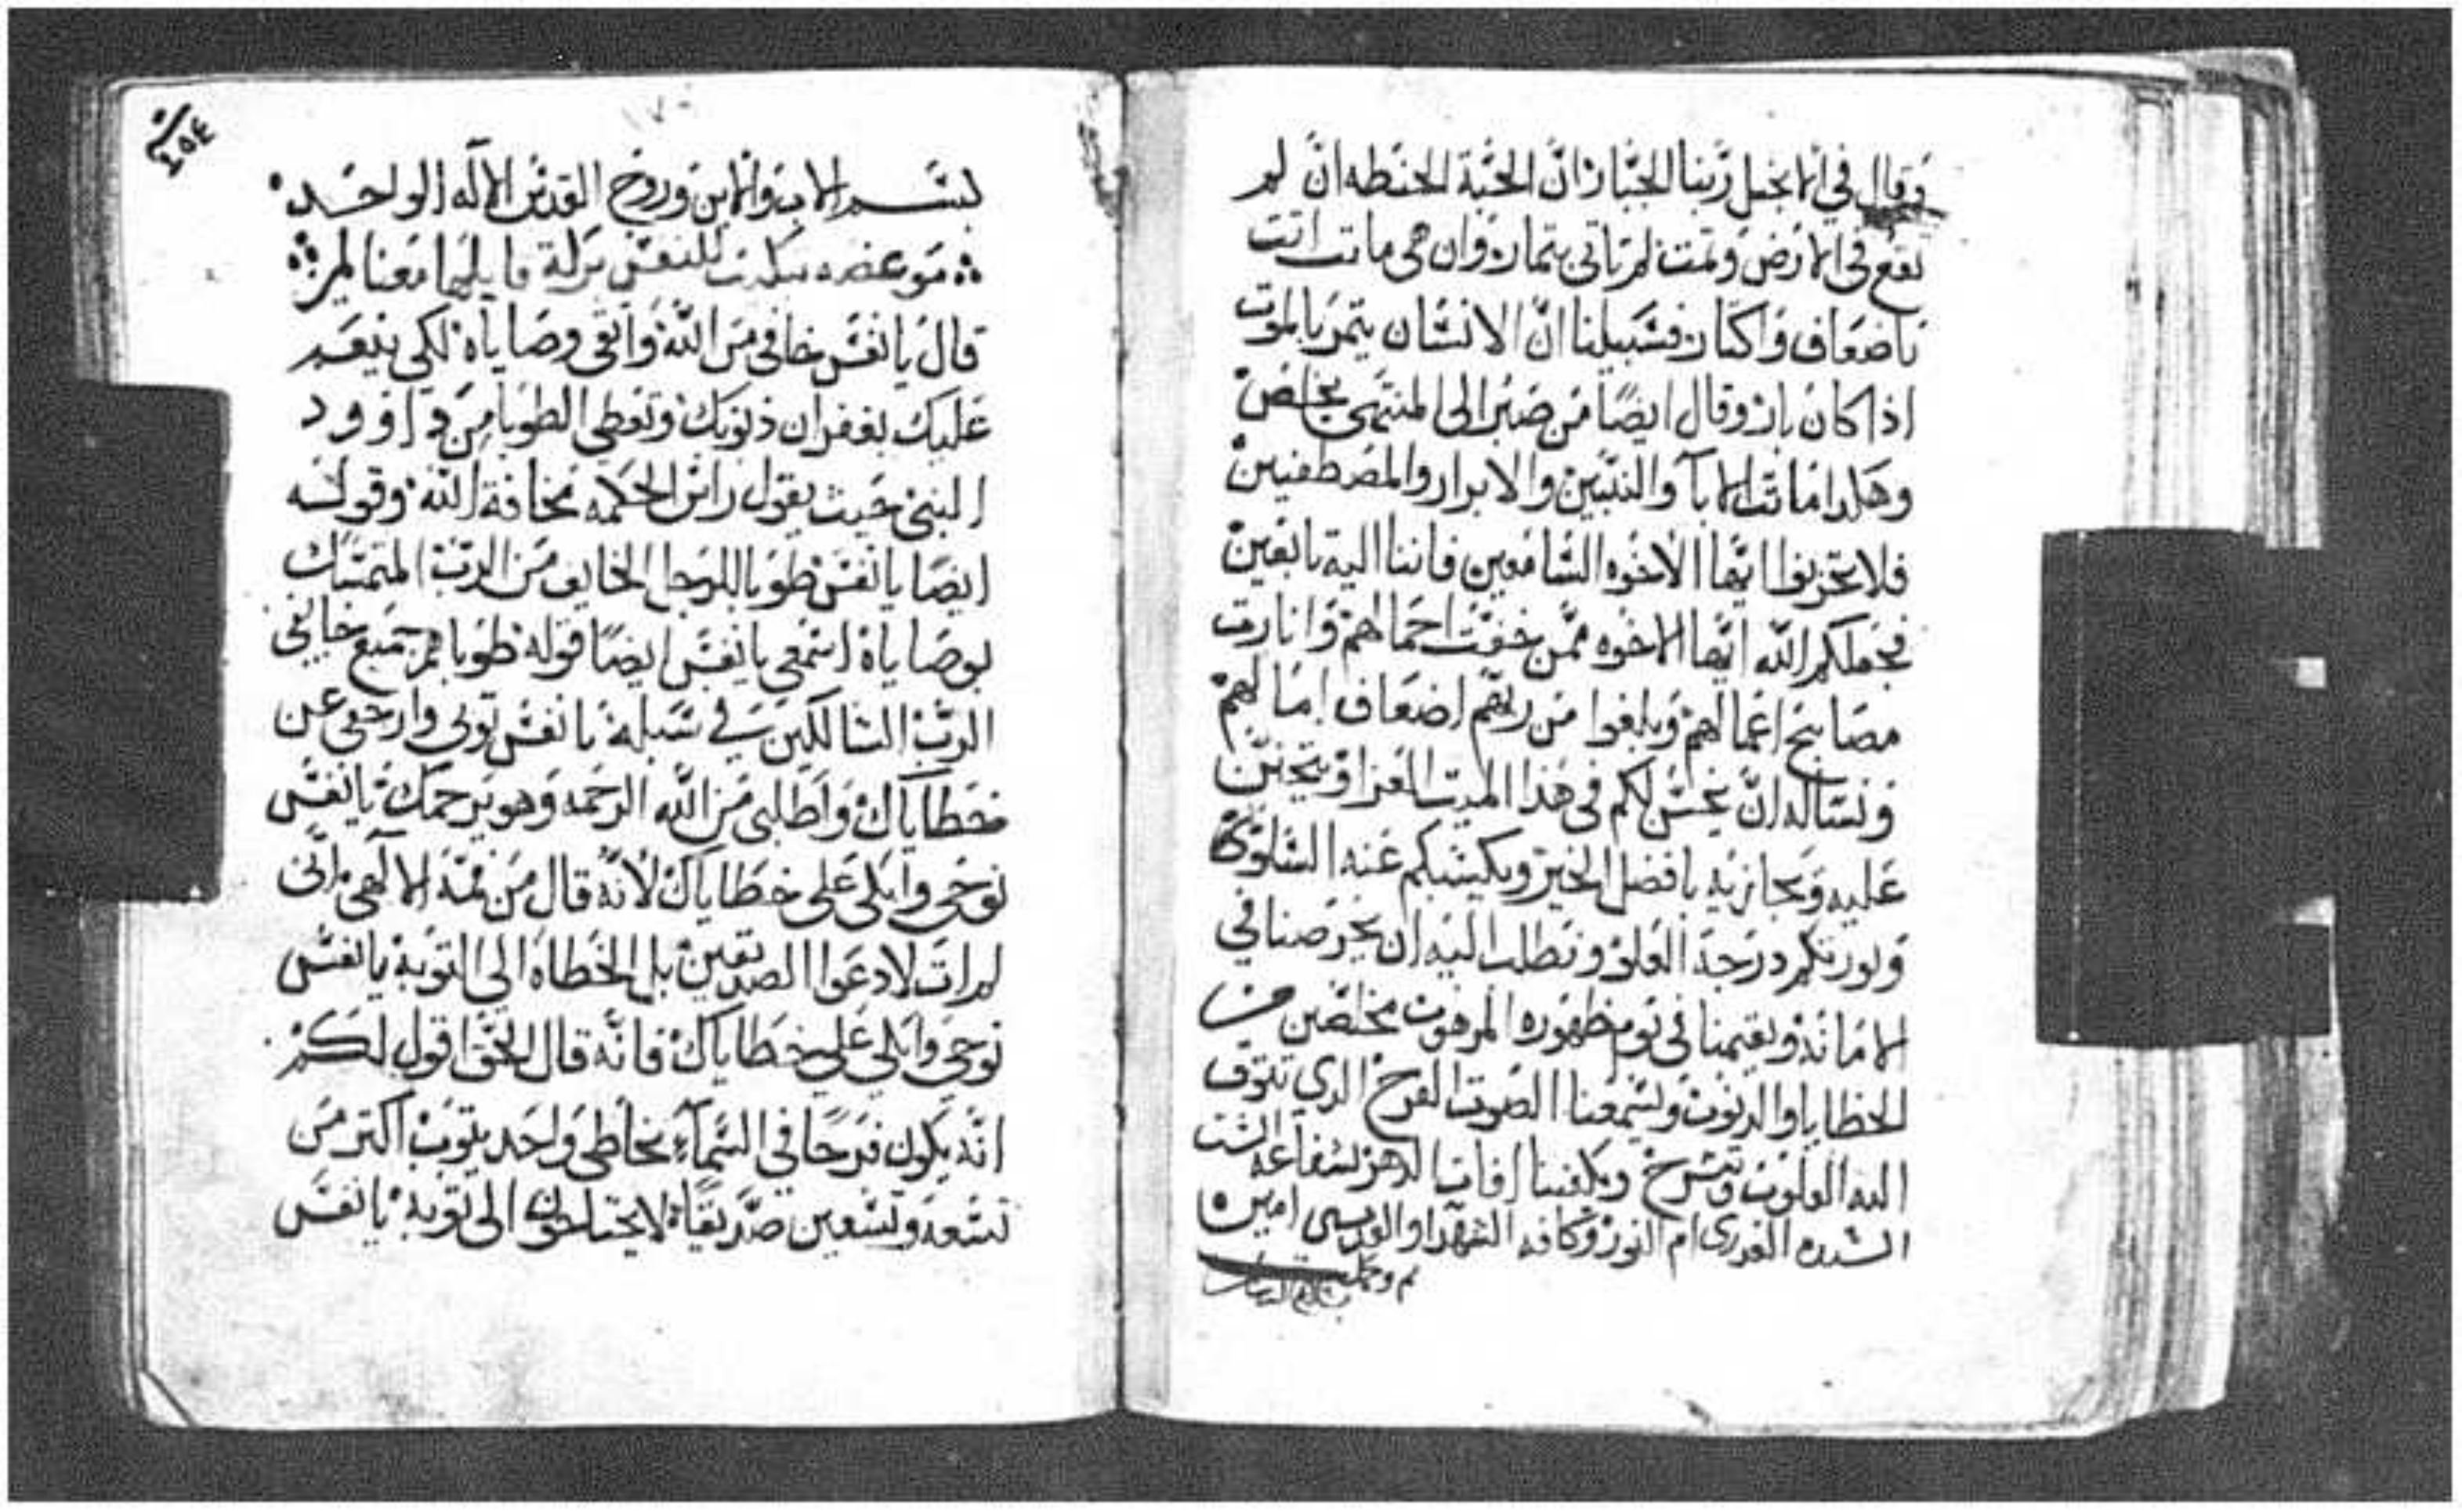 وقال في الانجيل ربنا الجبار ان الحبة الحنطه ان لم
تقع في الارض وتمت لم تاتي بتمار وان هي ماتت اتت
باضعاف واكتار فسبيلنا ان الانسان يتمر بالموت
اذا كان بار وقال ايضًا من صبر الى المنتهى يخلص
وهكدا ماتت الابآ والنبيين والابرار والمصطفيين
فلا تحزنوا ايها الاخوه السامعين فاننا اليه تابعين
فجعلكم الله ايها الاخوه ممن خفت احمالهم وانارت
مصابيح اعمالهم وبلغوا من ربهم اضعاف امالهم
ونساله ان يحسن لكم في هذا الميت العزا ويتحنن
عليه ويجازيه بافضل الخير ويكسبكم عنه السلوى
ويورتكم درجة العلو ونطلب اليه ان يحرصنا في
الامانه ويقيمنا في يوم ظهوره المرهوب مخلصين من
الخطايا والدنوب ويسمعنا الصوت الفرح الدي تتوق
اليه القلوب وتنشرح ويكفينا افات الدهر بشفاعة الست
السيده العدرى ام النور وكافه الشهدا والقديسين امين
تم وكمل
٤٥٤
بسم الاب والابن وروح القدس الاله الواحد
موعضه تبكت للنفس قايلها معنا لمر
قال يا نفس خافي من الله واتقي وصاياه لكي ينعم
عليك بغفران ذنوبك وتعطي الطوبا من داوود
النبي حيت يقول راس الحكمه مخافة الله وقوله
ايضا يا نفس طوبا للرجل الخايف من الرب المتمسك
بوصاياه اسمعي يا نفس ايضًا قوله طوباهم جميع خايفي
الرب السالكين في سبله يا نفس توبي وارجعي عن
خطاياك واطلبي من الله الرحمه وهو يرحمك يا نفس
نوحي وابكي على خطاياك لانه قال من فمه الالهي اني
لم ات لادعوا الصديقين بل الخطاه الي التوبه يا نفس
نوحي وابكي علي خطاياك فانه قال الحق اقول لكم
انه يكون فرحًا في السمآء بخاطي واحد يتوب اكتر من
تسعه وتسعين صديقًا لا يحتاجون الى توبه يا نفس